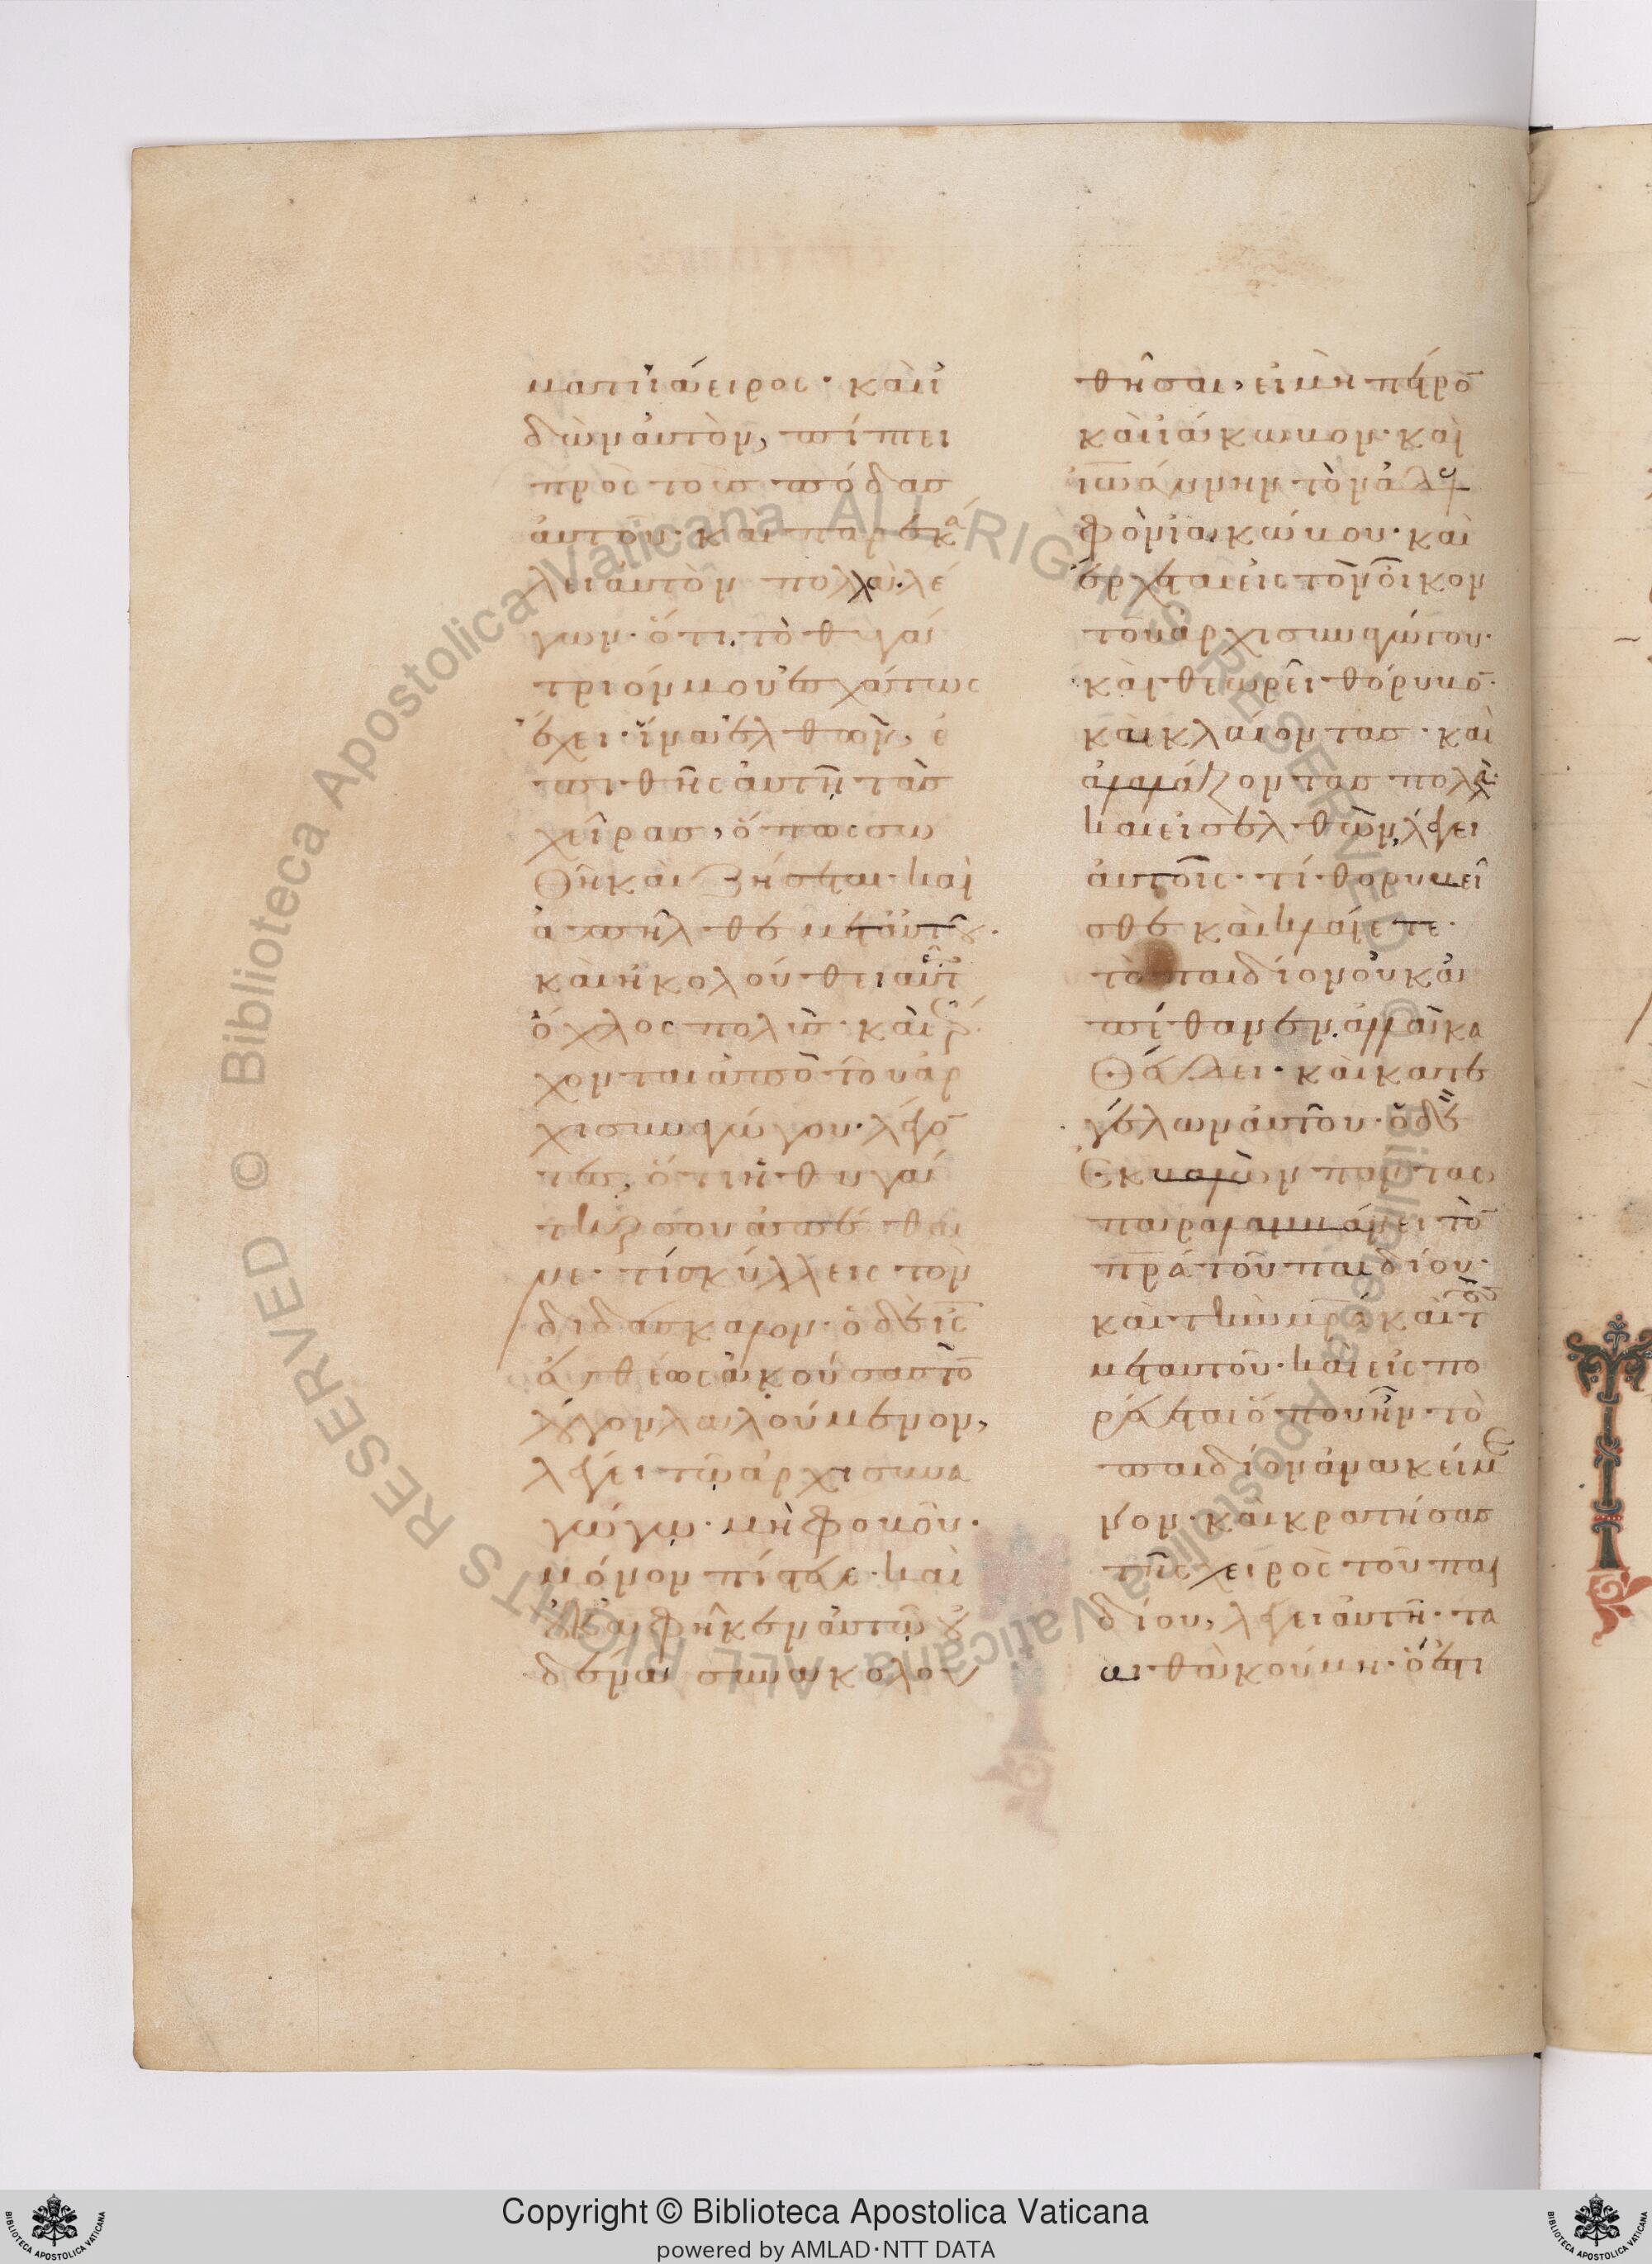 ματι ϊάειρος· καὶ ἰ
δὼν αὐτὸν, πίπτει
πρὸς τοὺς πόδας
αὐτοῦ· καὶ παρεκά
λει αὐτὸν πολλὰ· λέ
γων· ὅτι τὸ θυγά
τριόν μου ἐσχάτως
ἔχει· ἵνα ἐλθὼν, ἐ
πιθῇς αὐτῇ τὰς
χεῖρας, ὅπως σω
θῇ καὶ ζήσεται· καὶ
ἀπῆλθε μετ αὐτοῦ·
καὶ ἠκολούθει αὐτῶ
ὄχλος πολὺς· καὶ ἔρ
χονται ἀπὸ τοῦ ἀρ
χισυναγώγου· λέγο
τες, ὅτι ἡ θυγά
τηρ σου ἀπέθα
νε· τί σκύλλεις τὸν
διδάσκαλον· ὁ δὲ ι̅ς̅
εὐθέως ἀκούσας τὸ
λόγον λαλούμενον,
λέγει τῷ ἀρχισυνα
γώγῳ· μὴ φοβοῦ·
μόνον πίστευε· καὶ
οὐκ ἀφῆκεν αὐτῷ οὐ
δένα συνακολου
θῆσαι, εἰ μὴ πέτρο
καὶ ϊάκωβον· καὶ
ϊωάννην τὸν ἀδελ
φὸν ϊακώβου· καὶ
ἔρχεται εἰς τὸν οἶκον
τοῦ ἀρχισυναγώγου·
καὶ θεωρεῖ θόρυβο·
καὶ κλαίοντας· καὶ
ἀλαλάζοντας πολλὰ·
καὶ εἰσελθὼν, λέγει
αὐτοῖς· τί θορυβεῖ
σθε καὶ κλαίετε·
τὸ παιδίον οὐκ ἀ
πέθανεν. ἀλλὰ κα
θεύδει· καὶ κατε
γέλων αὐτοῦ· ὁ δὲ
ἐκβαλὼν πάντας
παραλαμβάνει τὸ
π̅ρ̅α̅ τοῦ παιδίου·
καὶ τὴν μ̅ρ̅α̅ καὶ τοὺς
μετ αὐτοῦ· καὶ εἰσπο
ρεύεται ὅπου ἦν τὸ
παιδίον ἀνακείμε
νον· καὶ κρατήσας
τῆς χειρὸς τοῦ παι
δίου, λέγει αὐτῇ· τα
λιθὰ κούμι· ὅ ἐστι
Copyright © Biblioteca Apostolica Vaticana
powered by AMLAD·NTT DATA
© Biblioteca Apostolica Vaticana ALL RIGHTS RESERVED
© Biblioteca Apostolica Vaticana ALL RIGHTS RESERVED
BIBLIOTECA APOSTOLICA VATICANA
BIBLIOTECA APOSTOLICA VATICANA